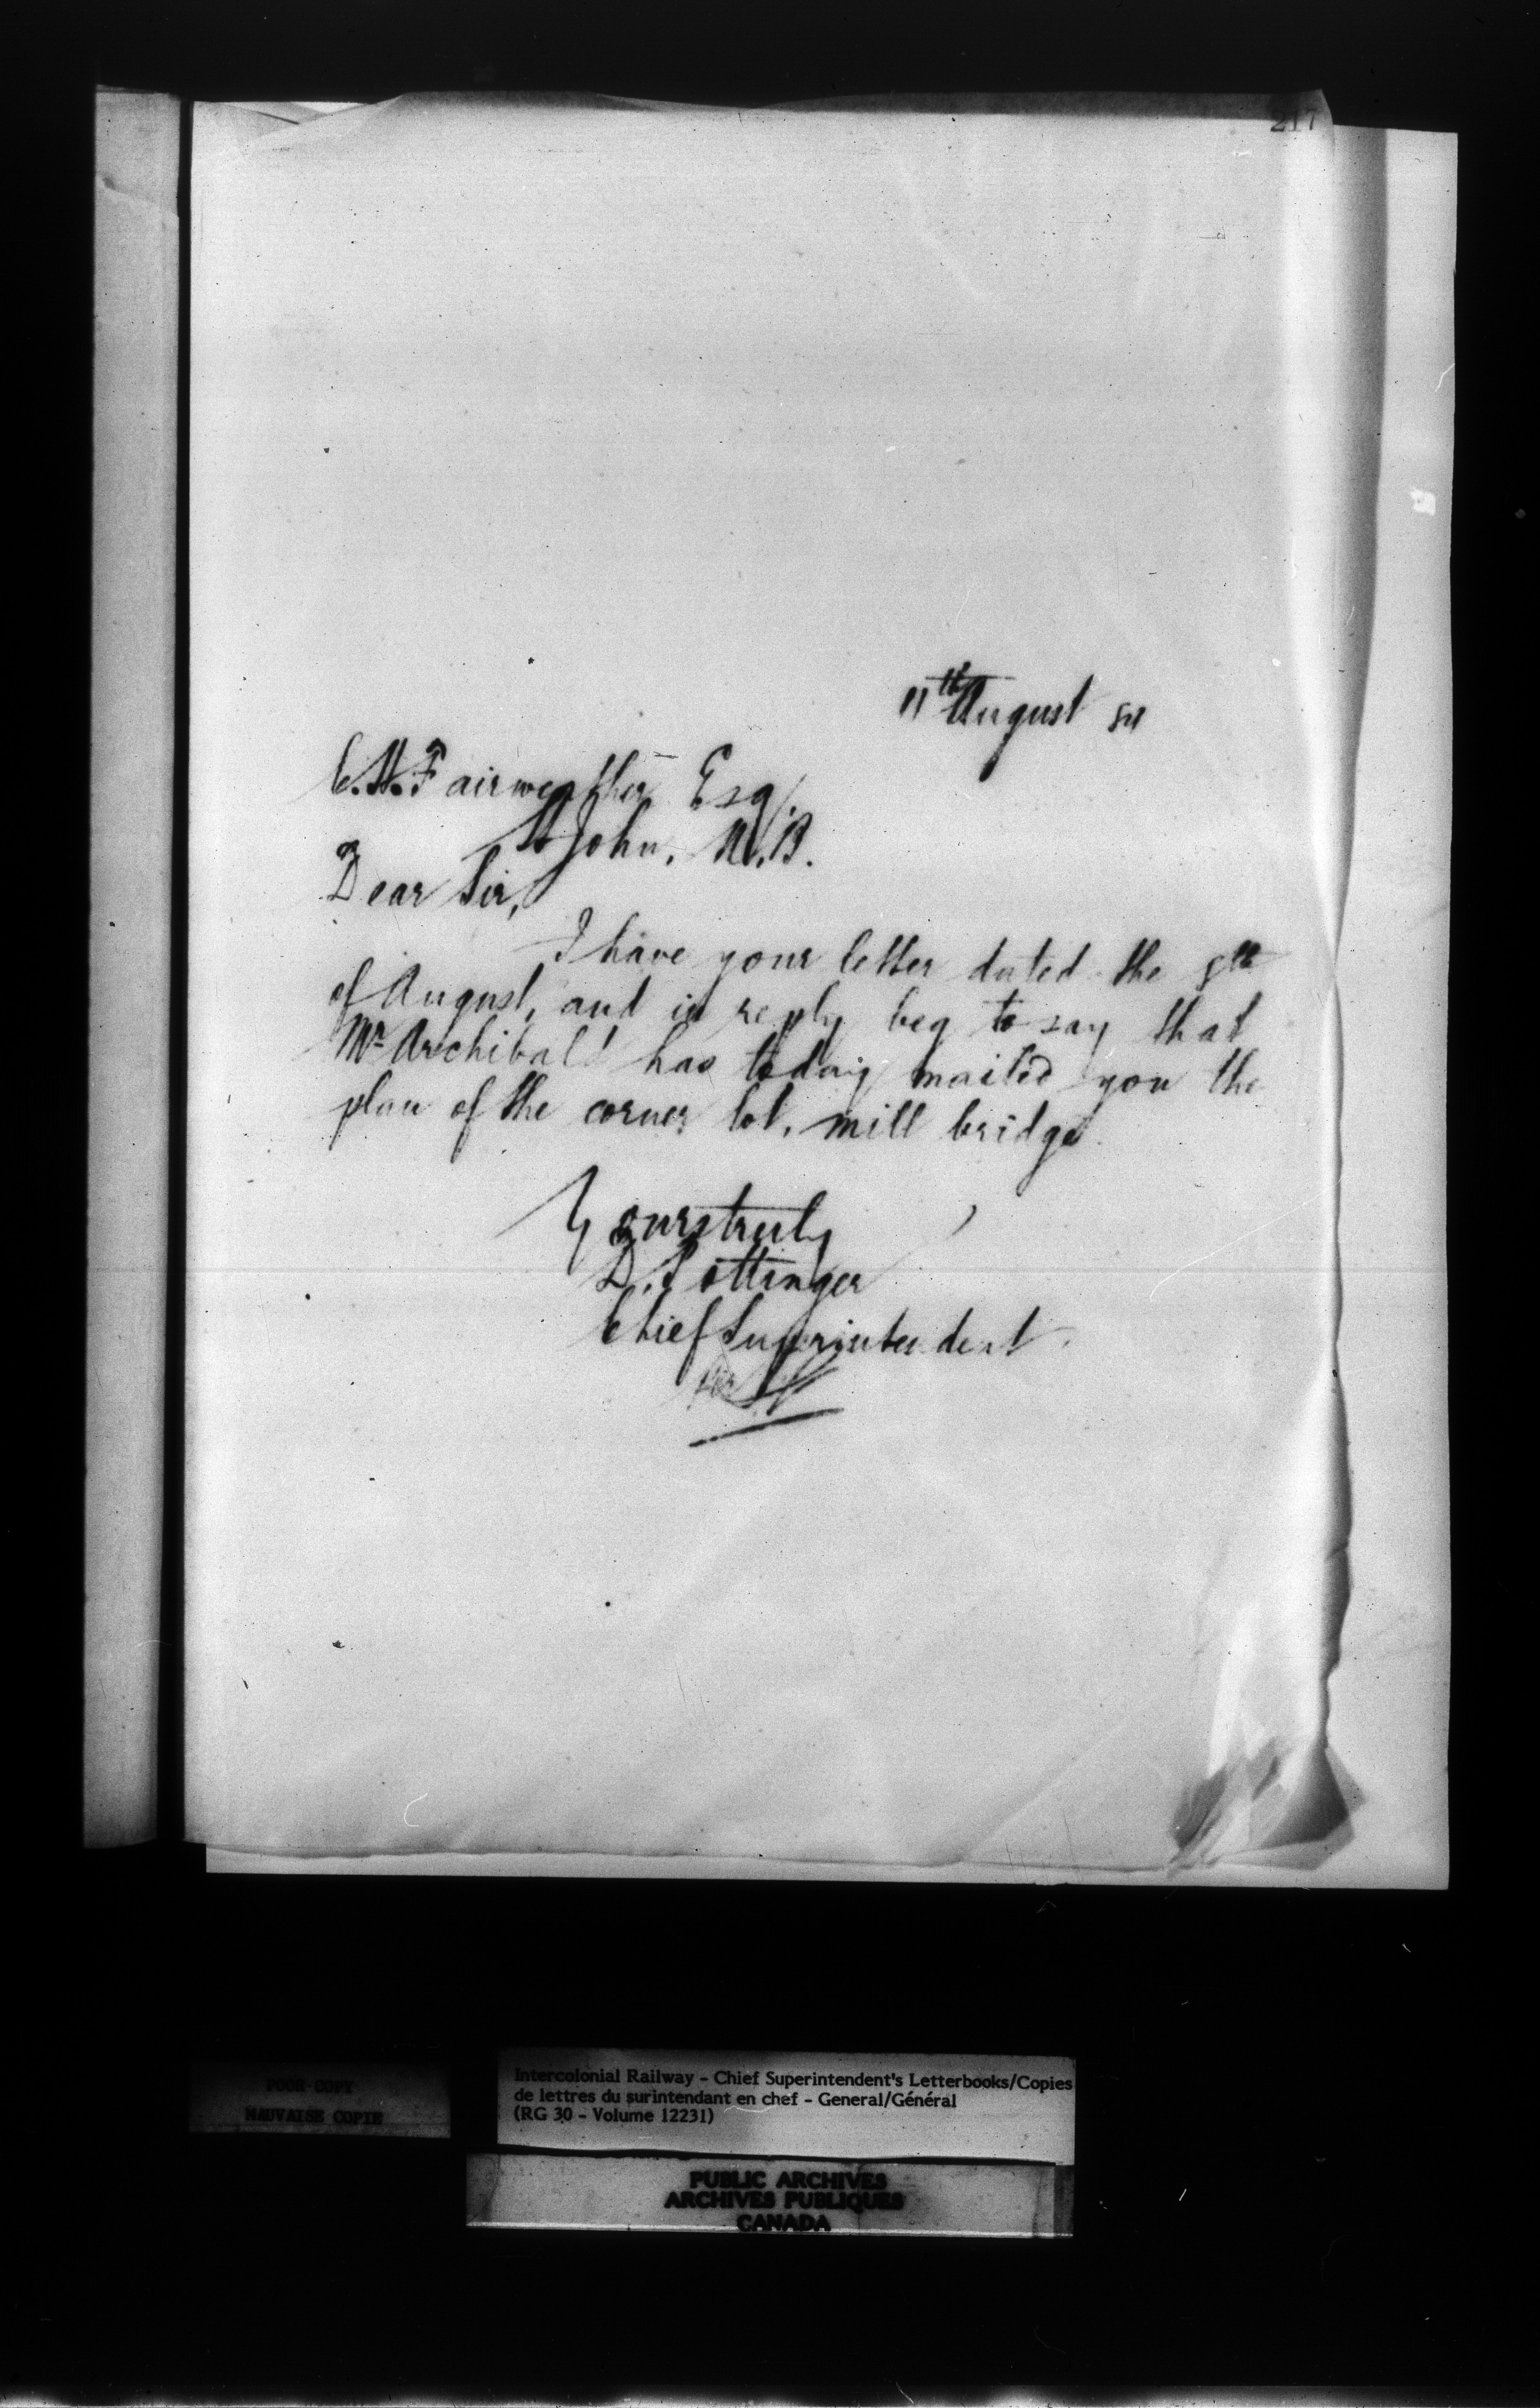 217
11th August 84
C.H. Fairweather Esq.
St John, N.B.
Dear Sir,
I have your letter dated the 8th
of August, and in reply beg to say that
Mr Archibald has today mailed you the
plan of the corner lot, mill bridge.
Yours truly
D. Pottinger
Chief Superintendent
POOR COPY
MAUVAISE COPIE
Intercolonial Railway - Chief Superintendent's Letterbooks/Copies
de lettres du surintendant en chef - General/Général
(RG 30 - Volume 12231)
PUBLIC ARCHIVES
ARCHIVES PUBLIQUES
CANADA